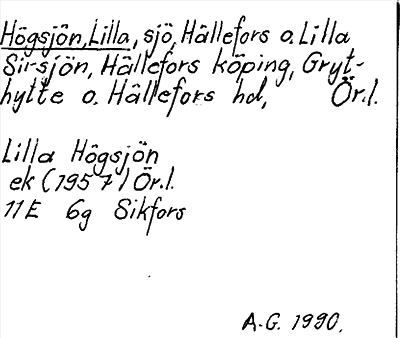 Högsjön, Lilla, sjö, Hällefors o. Lilla
Sirsjön, Hällefors köping, Gryt-
hytte o. Hällefors hd, Ör.l.
Lilla Högsjön
ek (1957) Ör.l.
11E 6g Sikfors
A-G. 1990.